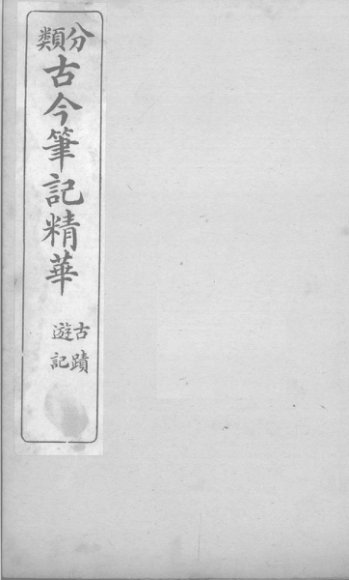 分類
古今筆記精華
古蹟
遊記